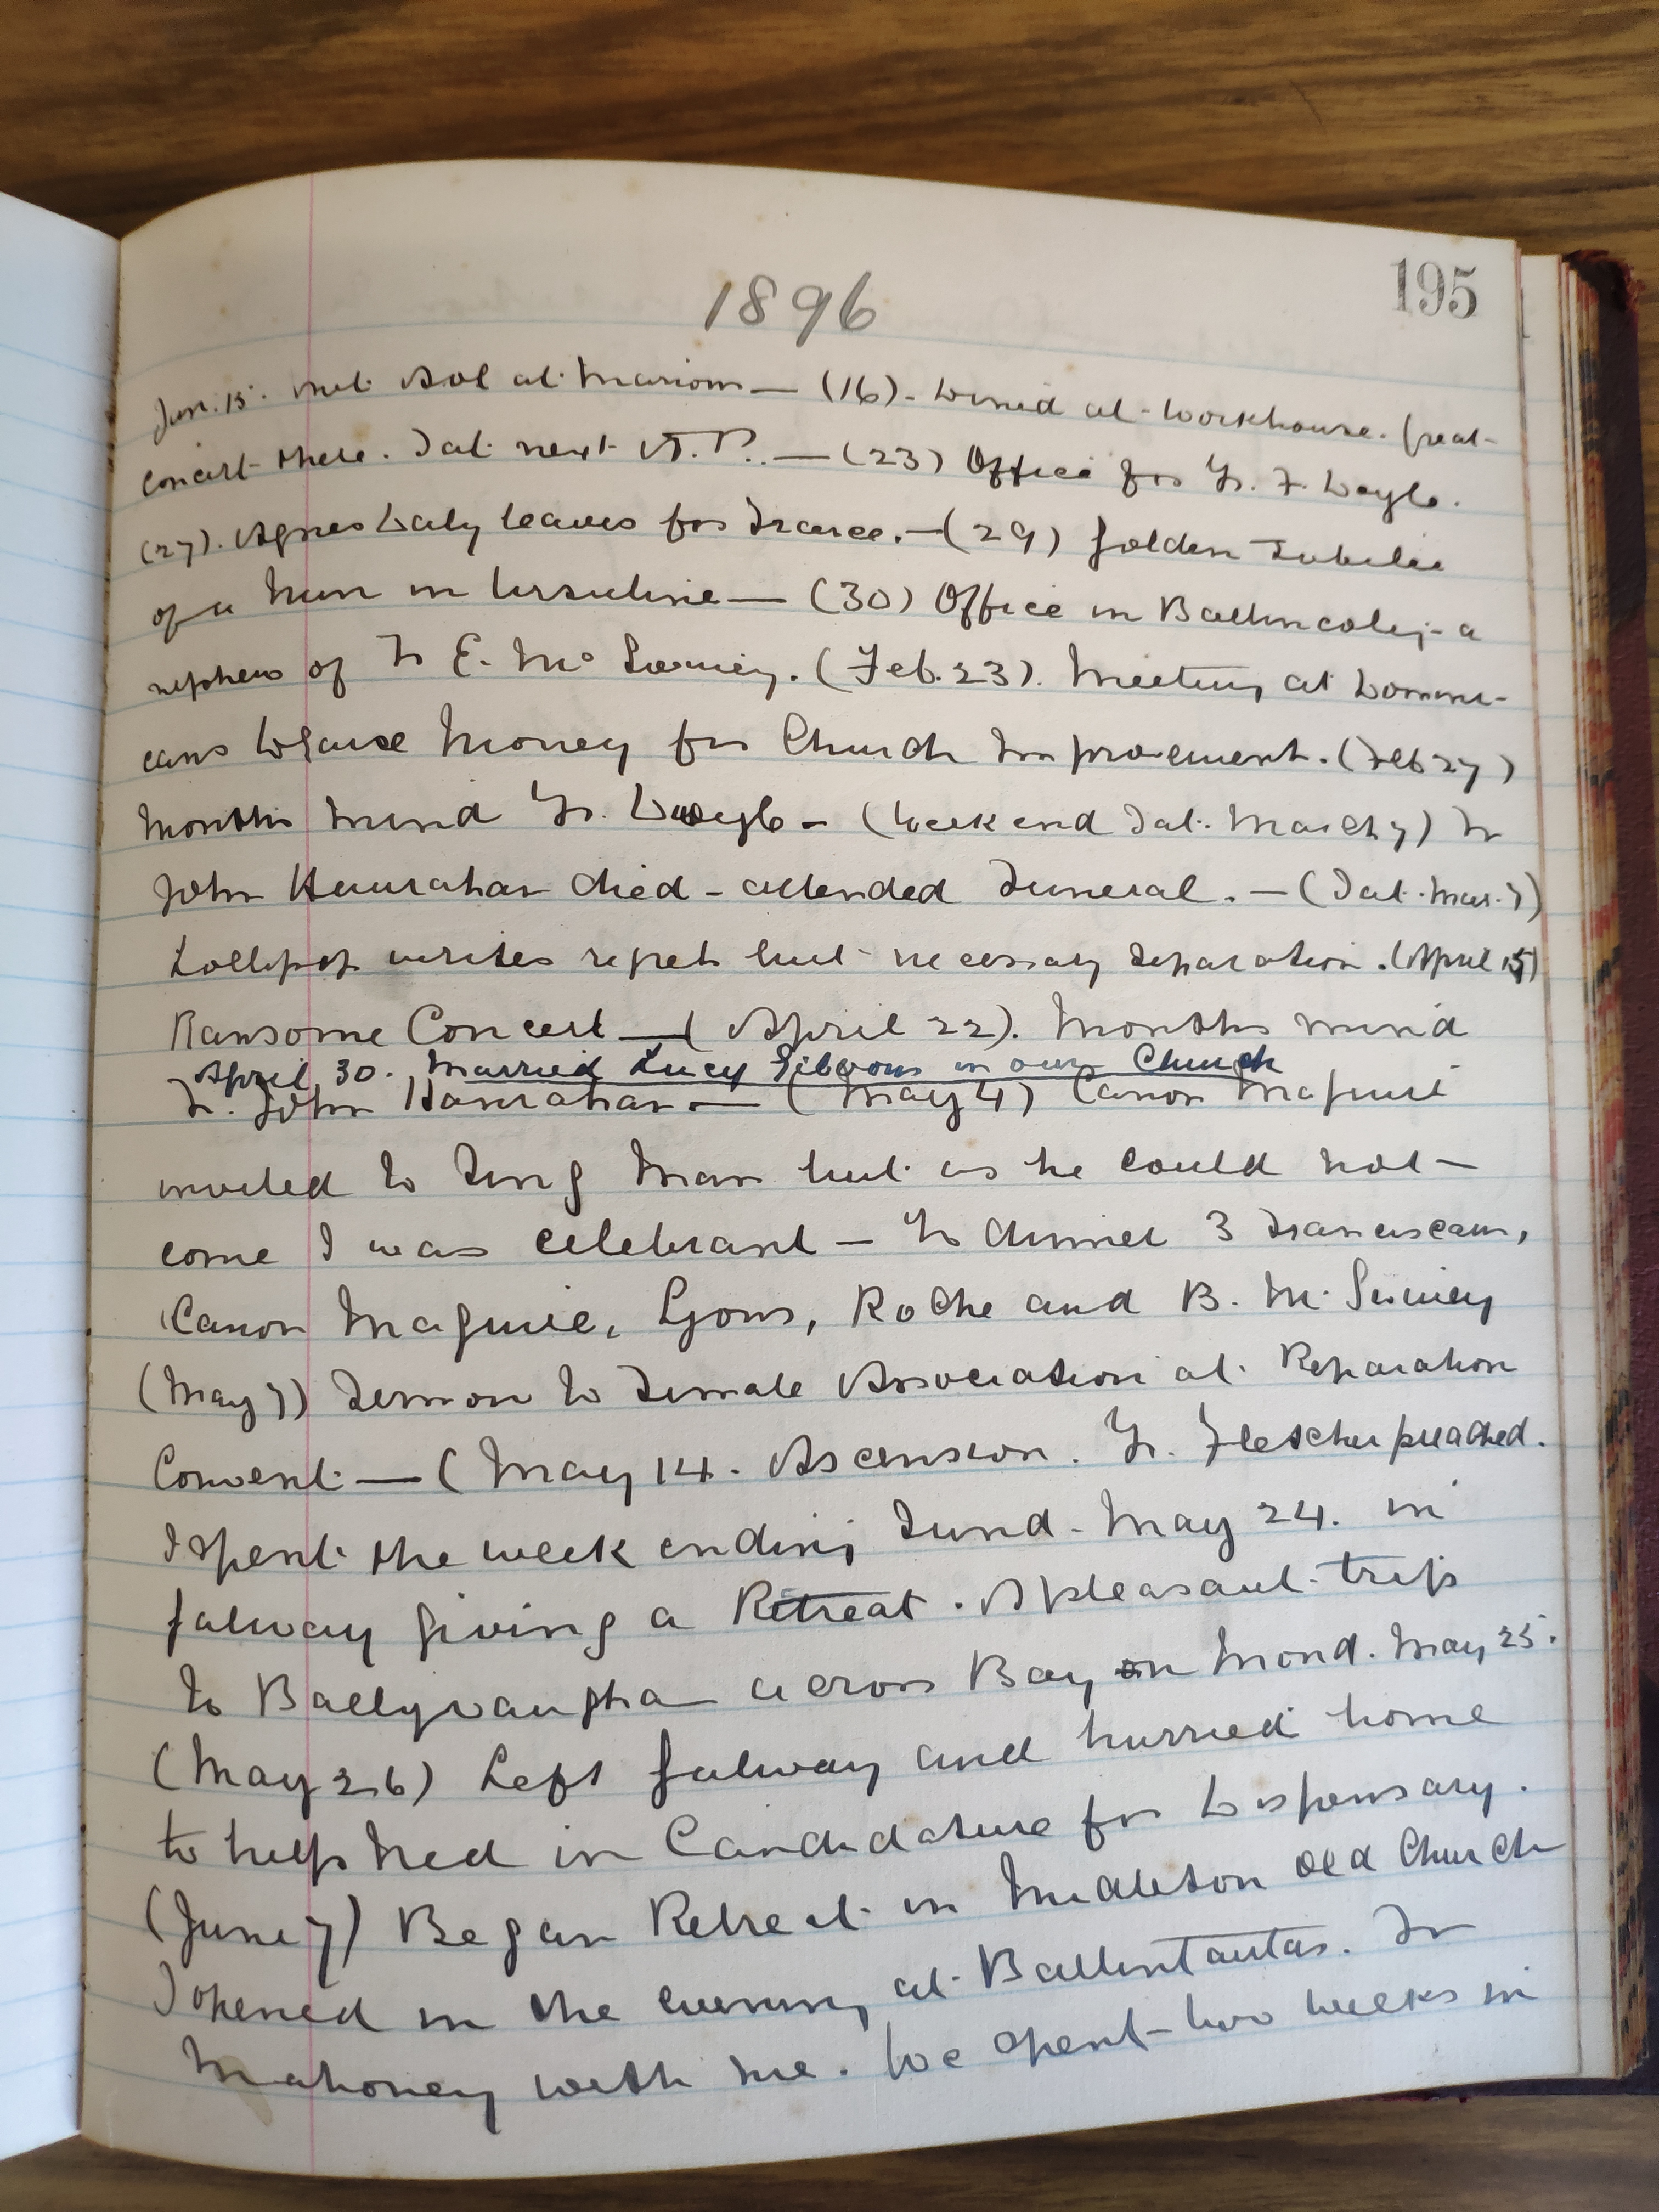 195
1896
Jan. 15. met Sol at Marion — (16). Dined at Workhouse. Great
Concert there. Sat next V. P. — (23) Office for Fr. F. Doyle.
(27). Agnes Daly leaves for France. — (29) Golden Jubilee
of a Nun in Ursuline — (30) Office in Ballincolig - a
nephew of Fr E. Mc Sweeney. (Feb. 23). Meeting at Domini-
cans to raise Money for Church Improvement. (Feb 27)
Months Mind Fr. Doyle - (Week end Sat. March 7) Fr
John Hanrahan died - attended Funeral. — (Sat. Mar. 7)
Lollipop writes regret but necessary separation. (April 15)
Ransome Concert — (April 22). Months mind
April 30. Married Lucy Gibbons in our Church
Fr. John Hanrahan — (May 4) Canon Maguire
invited to Sing Mass but as he could not
come I was celebrant — To dinner 3 Franciscans,
Canon Maguire, Lyons, Roche and B. Mc Swiney
(May 7) Sermon to Female Association at Reparation
Convent — (May 14. Ascension. Fr. Fletcher preached.
I spent the week ending Sund. May 24. in
Galway giving a Retreat. A pleasant trip
to Ballyvaughan across Bay on Mond. May 25.
(May 26) Left Galway and hurried home
to help Ned in Candidature for Dispensary.
(June 7) Began Retreat in Midleton Old Church
I opened in the evening at Ballintautas. Fr
Mahoney with me. We spent two weeks in